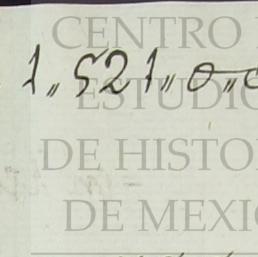 CENTRO
1,,521,,0,,0
ESTUDIO
DE HISTO
DE MEXI